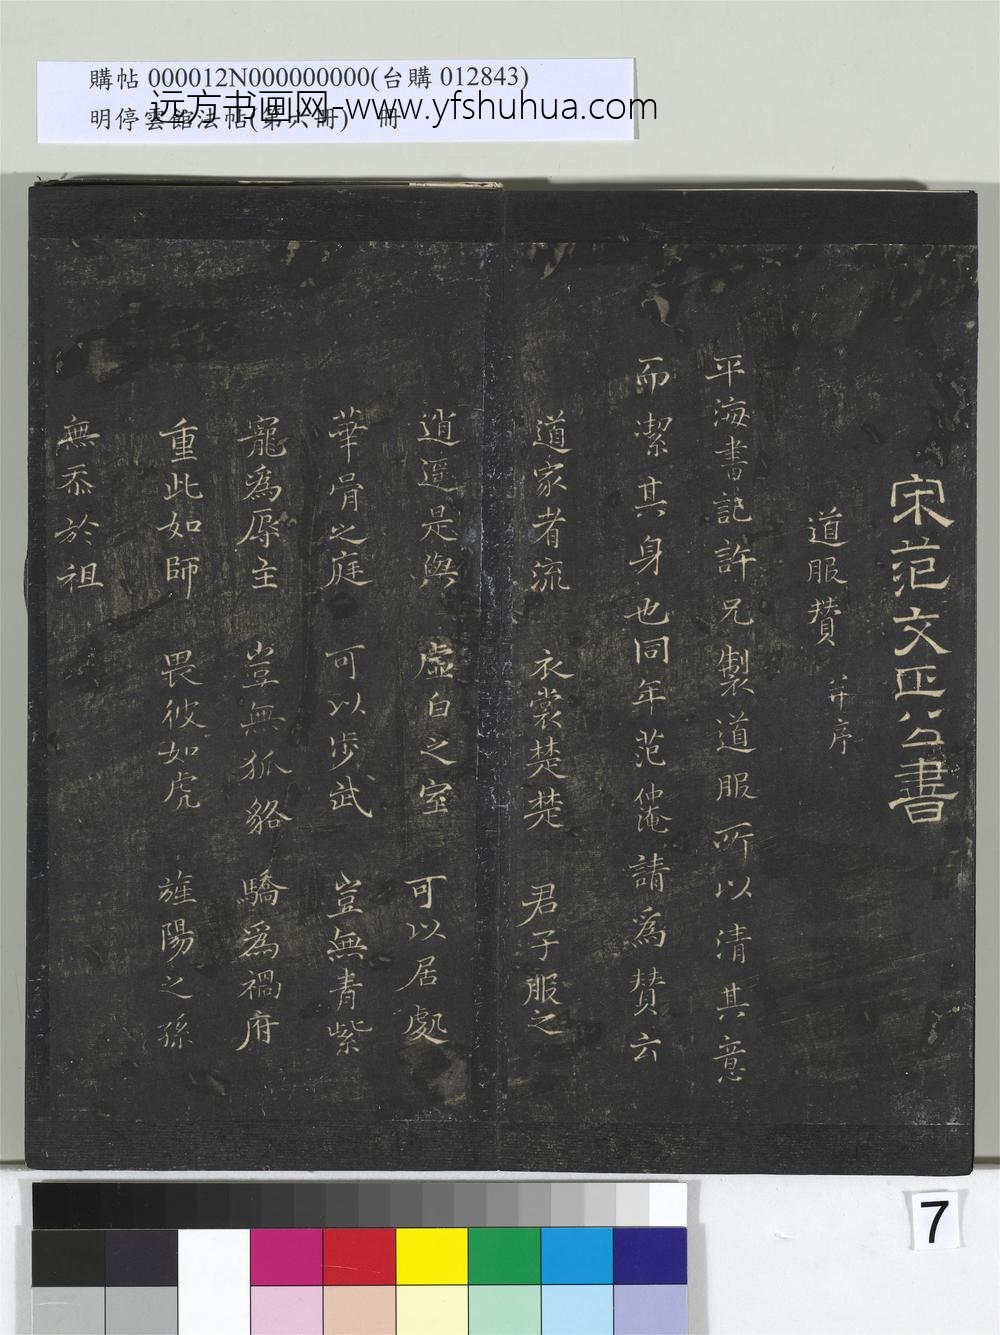 購帖 000012N000000000(台購 012843)
明停雲館法帖(第六冊) 冊
远方书画网-www.yfshuhua.com
宋范文正公書
道服賛 并序
平海書記許兄製道服所以清其意
而潔其身也同年范仲淹請為賛云
道家者流 衣裳楚楚 君子服之
逍遥是與 虛白之室 可以居處
華胥之庭 可以步武 豈無青紫
寵為辱主 豈無狐貉 驕為禍府
重此如師 畏彼如虎 旌陽之孫
無忝於祖
7